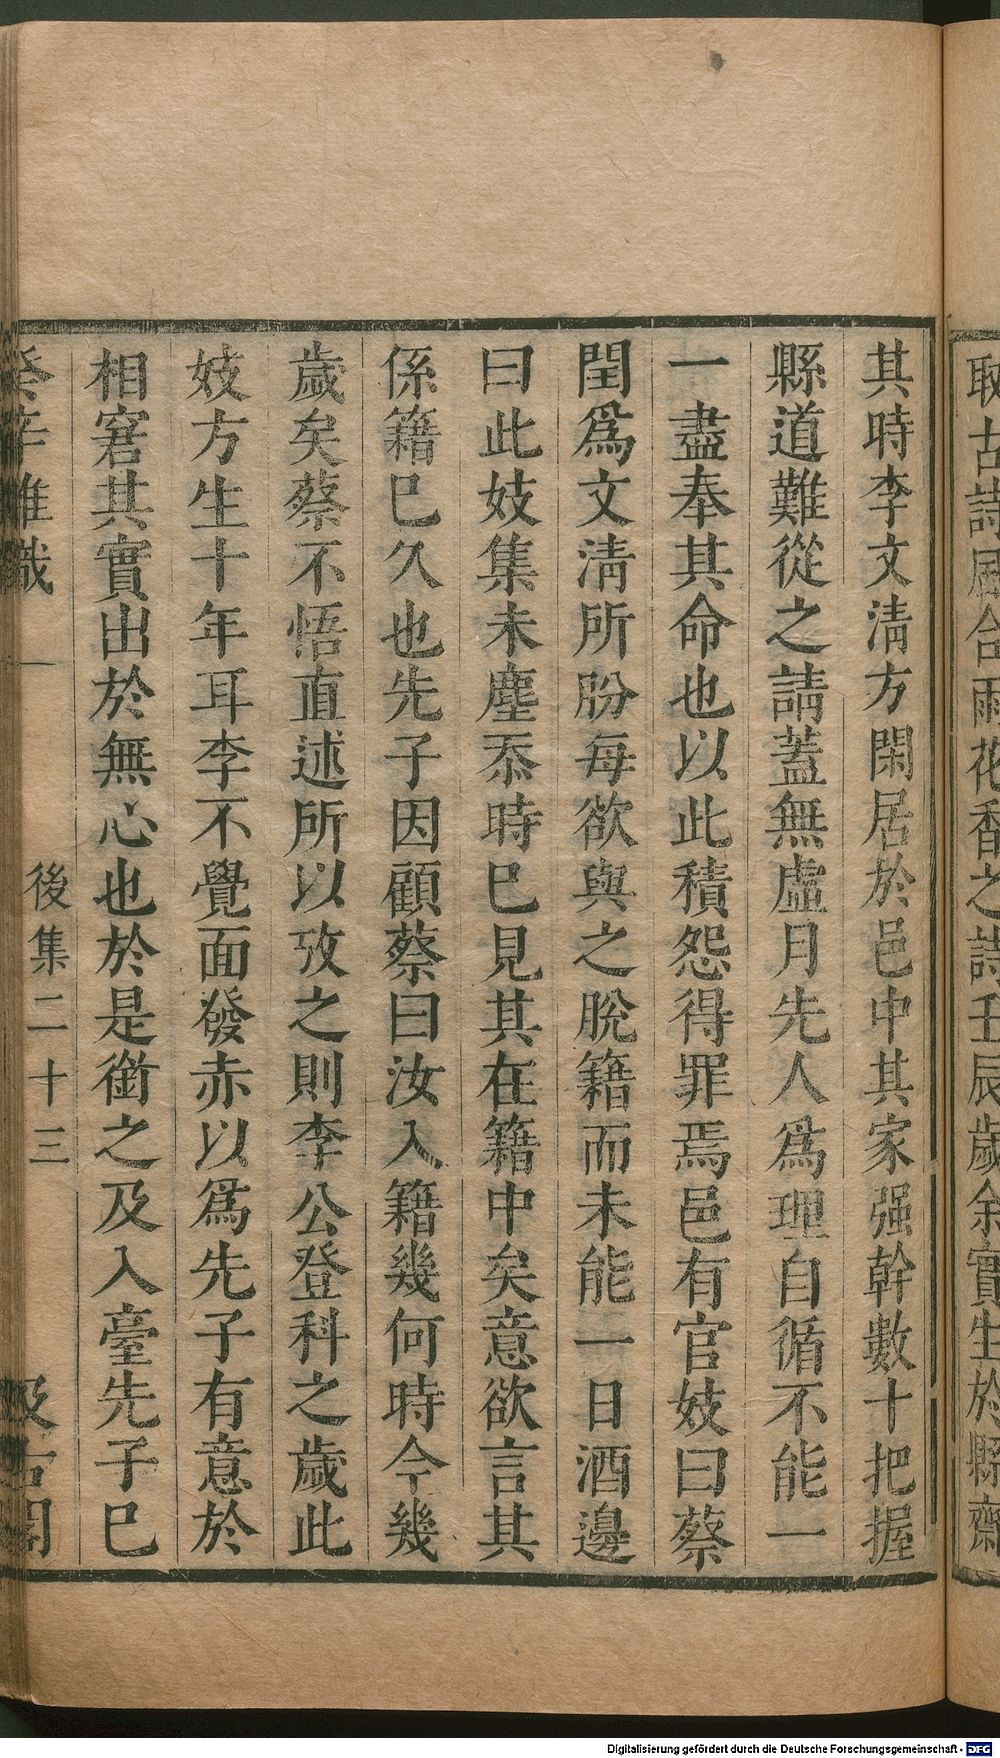 取古詩風含雨花香之詩壬辰歲余實生於縣齋
其時李文淸方閑居於邑中其家强幹數十把握
縣道難從之請蓋無虛月先人爲理自循不能一
一盡奉其命也以此積怨得罪焉邑有官妓曰蔡
閏爲文淸所盼每欲與之脫籍而未能一日酒邊
曰此妓集未塵忝時巳見其在籍中矣意欲言其
係籍巳久也先子因顧蔡曰汝入籍幾何時今幾
歲矣蔡不悟直述所以攷之則李公登科之歲此
妓方生十年耳李不覺面發赤以爲先子有意於
相窘其實出於無心也於是銜之及入臺先子巳
癸辛雜識
後集二十三
汲古閣
Digitalisierung gefördert durch die Deutsche Forschungsgemeinschaft - DFG